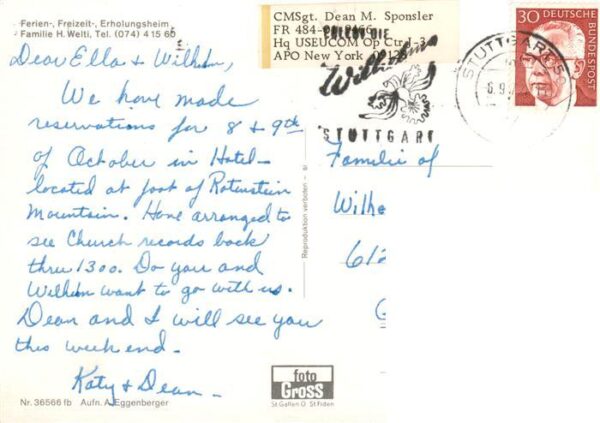 Ferien-, Freizeit-, Erholungsheim
Familie H. Welti, Tel. (074) 4 15 60
Dear Ella & Wilhelm,
We have made
reservations for 8 & 9th
of October in Hotel-
located at foot of Rotenstein
Mountain. Have arranged to
see Church records back
thru 1300. Do you and
Wilhelm want to go with us.
Dean and I will see you
this weekend.
Katy & Dean
Nr. 36566 fb Aufn. A. Eggenberger
Reproduktion verboten
CMSgt. Dean M. Sponsler
FR 484-
Hq USEUCOM Op Ctr J-3
APO New York
DIE
Wilhelma
STUTTGART
STUTTGART
30 DEUTSCHE
BUNDESPOST
Familie of
Wilhe
612
foto
Gross
St. Gallen O St. Fiden